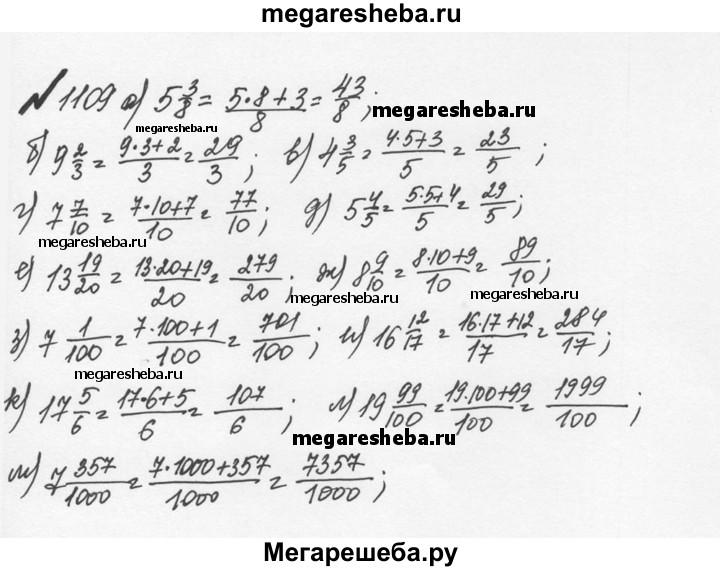 megaresheba.ru
№1109 а) 5 3/8 = (5·8+3)/8 = 43/8;
megaresheba.ru
megaresheba.ru
б) 9 2/3 = (9·3+2)/3 = 29/3; в) 4 3/5 = (4·5+3)/5 = 23/5;
megaresheba.ru
г) 7 7/10 = (7·10+7)/10 = 77/10; д) 5 4/5 = (5·5+4)/5 = 29/5;
megaresheba.ru
megaresheba.ru
е) 13 19/20 = (13·20+19)/20 = 279/20; ж) 8 9/10 = (8·10+9)/10 = 89/10;
megaresheba.ru
megaresheba.ru
з) 7 1/100 = (7·100+1)/100 = 701/100; и) 16 12/17 = (16·17+12)/17 = 284/17;
megaresheba.ru
megaresheba.ru
к) 17 5/6 = (17·6+5)/6 = 107/6; л) 19 99/100 = (19·100+99)/100 = 1999/100;
megaresheba.ru
м) 7 357/1000 = (7·1000+357)/1000 = 7357/1000;
Мегарешеба.ру